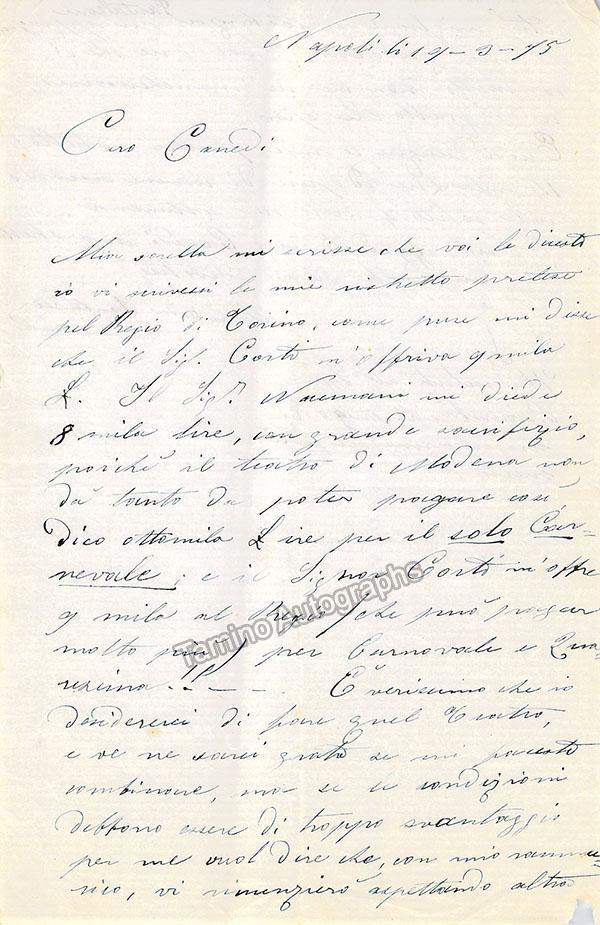 Napoli li 19-3-75
Caro Canedi
Mia sorella mi scrisse che voi le diceste
io vi scrivessi le mie ristrette pretese
pel Regio di Torino, come pure mi disse
che il Sig. Corti m'offriva 9 mila
L. Il Sig.r Naemani mi diede
8 mila lire, con grande sacrifizio,
poichè il teatro di Modena non
dà tanto da poter pagare così
dico ottomila Lire per il solo Car-
nevale; e il Signor Corti m'offre
9 mila al Regio (che può pagar
molto più) per Carnovale e Qua-
resima!! _ _ _ . È verissimo che io
desidererei di fare quel Teatro,
e ve ne sarei grata se mi faceste
combinare, ma se le condizioni
debbono essere di troppo svantaggio
per me vuol dire che, con mio ramma-
rico, vi rinunzierò aspettando altra
Tamino Autographs